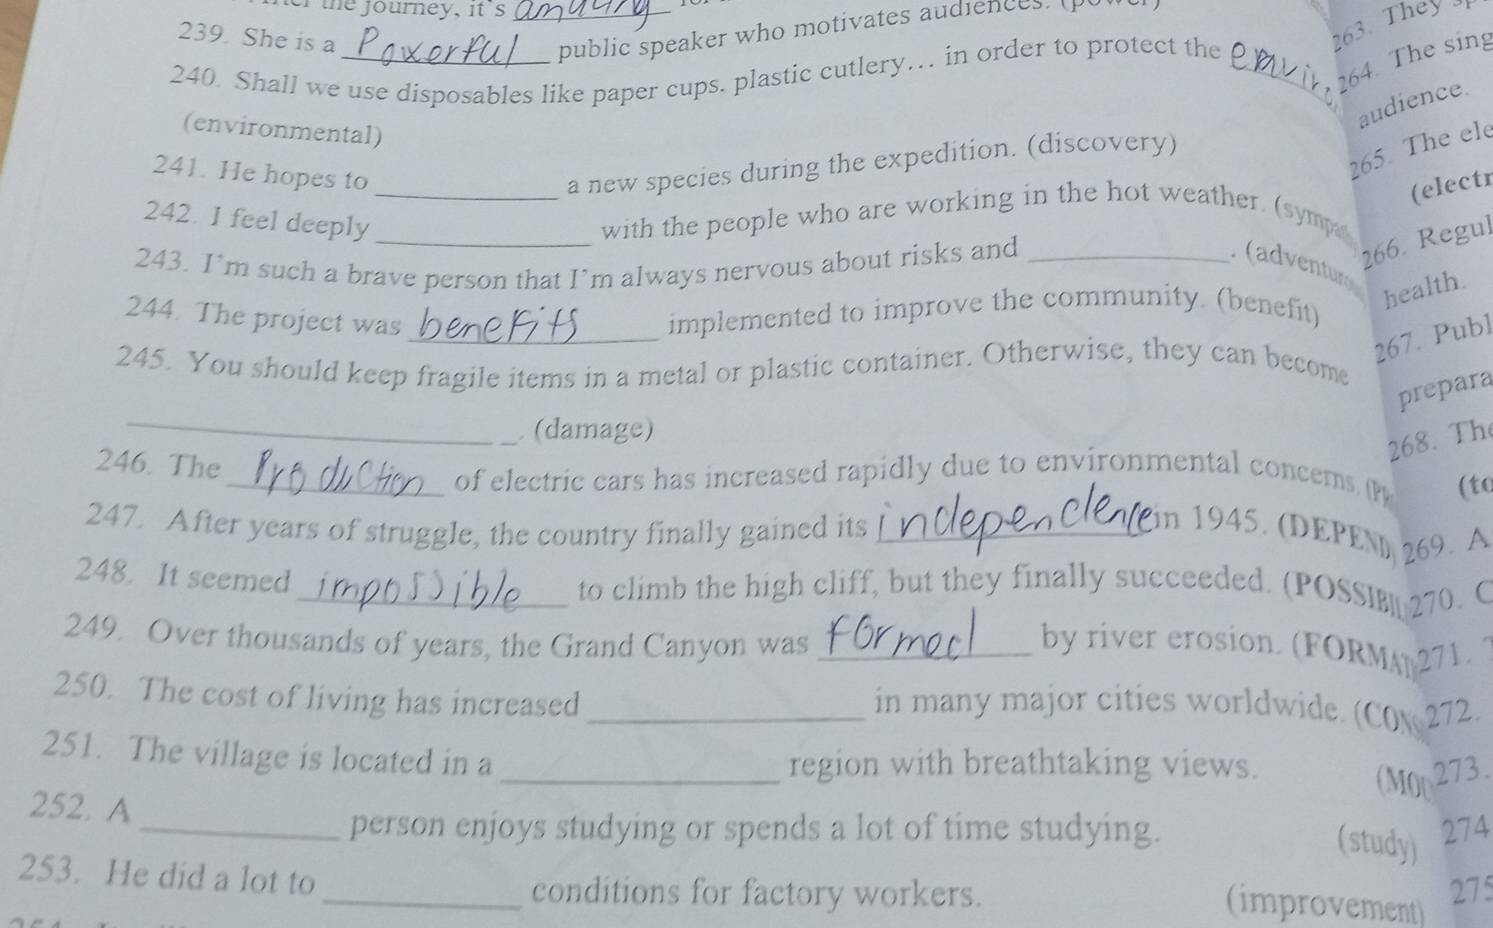 the journey, it's amazing
239. She is a Powerful public speaker who motivates audiences.
240. Shall we use disposables like paper cups, plastic cutlery... in order to protect the
(environmental)
241. He hopes to ____ a new species during the expedition. (discovery)
242. I feel deeply ____ with the people who are working in the hot weather.
243. I'm such a brave person that I'm always nervous about risks and ____.
244. The project was benefits implemented to improve the community. (benefit)
245. You should keep fragile items in a metal or plastic container. Otherwise, they can become
____. (damage)
246. The Production of electric cars has increased rapidly due to environmental concerns.
247. After years of struggle, the country finally gained its independence in 1945. (DEPEND)
248. It seemed impossible to climb the high cliff, but they finally succeeded. (POSSIBIL
249. Over thousands of years, the Grand Canyon was formed by river erosion. (FORMAT
250. The cost of living has increased ____ in many major cities worldwide. (CON
251. The village is located in a ____ region with breathtaking views. (MOU
252. A ____ person enjoys studying or spends a lot of time studying. (study)
253. He did a lot to ____ conditions for factory workers. (improvement)
263. They
264. The sing
audience.
265. The ele
(electr
266. Regul
health.
267. Publ
prepara
268. Th
(to
269. A
270. C
271.
272.
273.
274
275